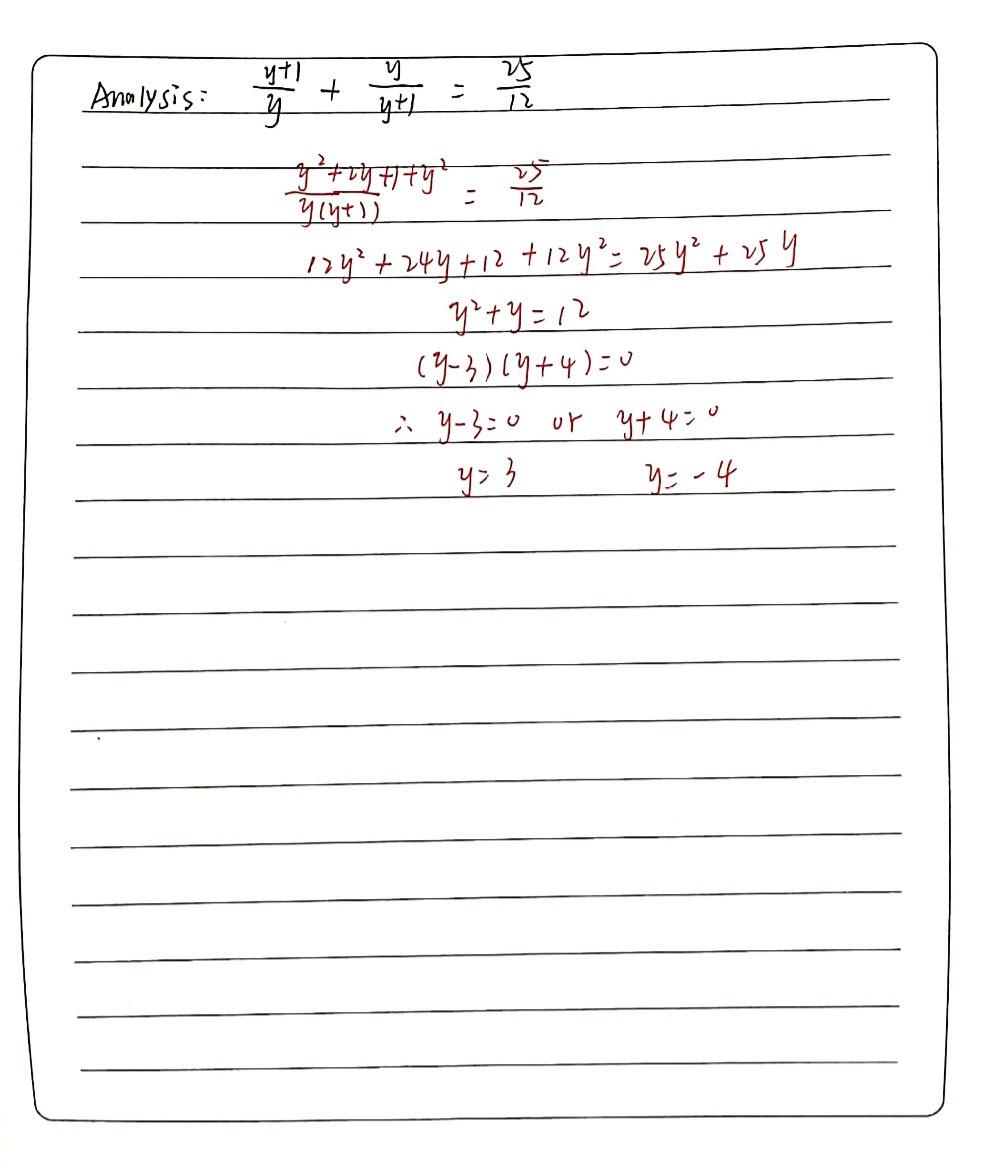 Analysis: \frac{y+1}{y} + \frac{y}{y+1} = \frac{25}{12}
\frac{y²+2y+1+y²}{y(y+1)} = \frac{25}{12}
12y² + 24y + 12 + 12y² = 25y² + 25y
y² + y = 12
(y-3)(y+4)=0
∴ y-3=0 or y+4=0
y=3 y=-4